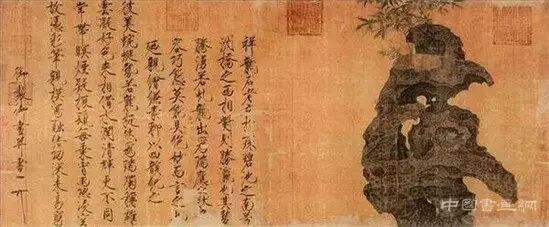 祥龍石者立於環碧池之南芳
洲橋之西相對則勝瀛也其勢
騰湧若虬龍出為瑞應之狀奇
容巧態莫能具絕妙而言之也
廼親繪縑素聊以四韻紀之
彼美蜿蜒勢若龍挺然為瑞獨稱雄
雲凝好色來相借水潤清輝更不同
常帶暝煙疑振鬣每乘宵雨恐凌空
故憑彩筆親模寫融結功深未易窮
御製御畫并書
中國書畫網